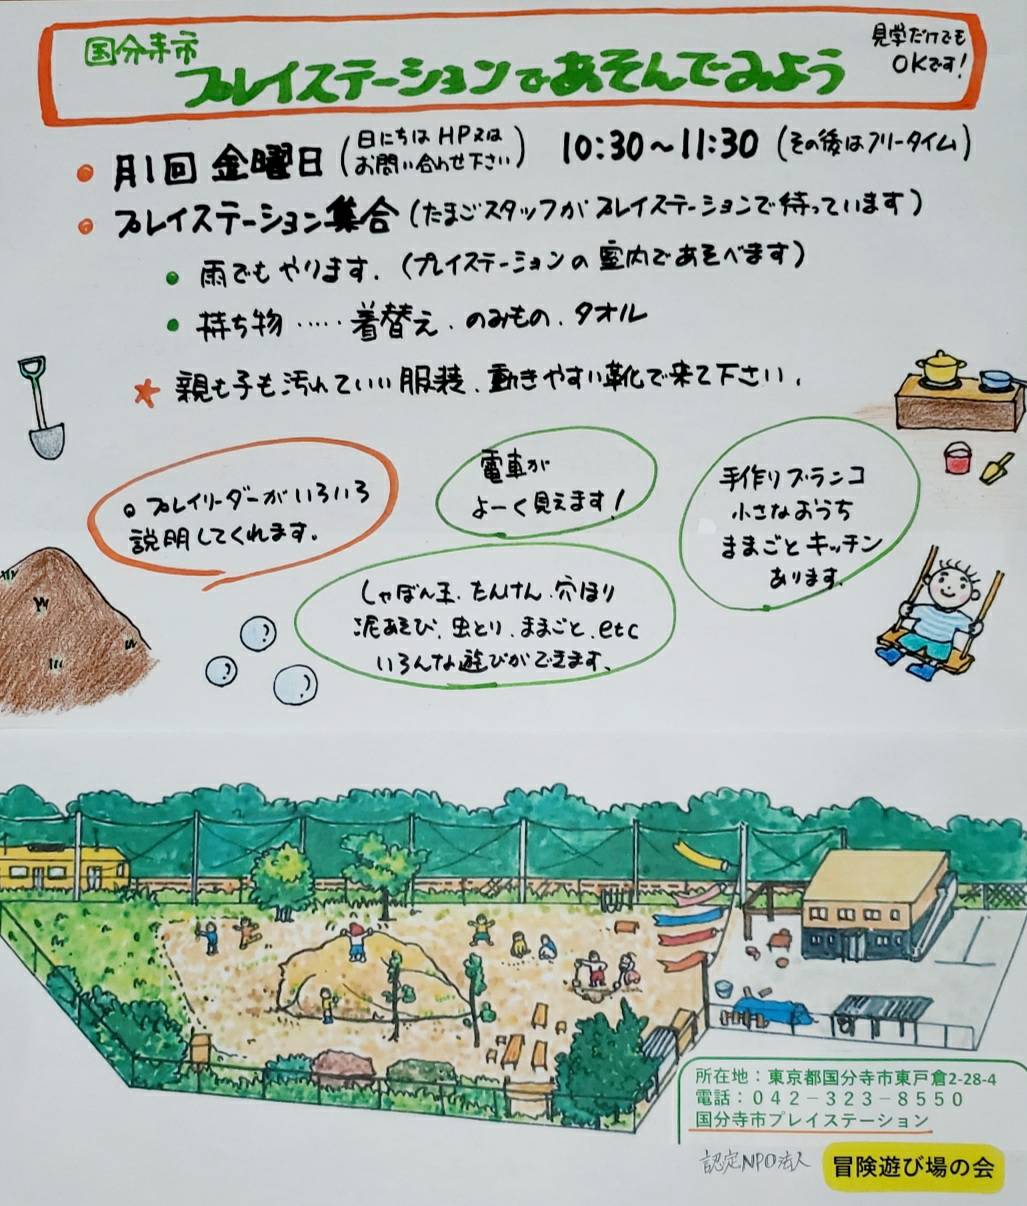 国分寺市
プレイステーションであそんでみよう
見学だけでも
OKです!
• 月1回 金曜日 (日にちは HP又は お問い合わせ下さい) 10:30～11:30 (その後はフリータイム)
• プレイステーション集合 (たまごスタッフが プレイステーションで待っています)
• 雨でもやります. (プレイステーションの室内であそべます)
• 持ち物 ‥‥‥ 着替え、のみもの、タオル
★ 親も子も汚れていい服装、動きやすい靴で来て下さい、
○ プレイリーダーがいろいろ
説明してくれます。
電車が
よーく見えます!
手作りブランコ
小さなおうち
ままごとキッチン
あります。
しゃぼん玉、たんけん、穴ほり
泥あそび、虫とり、ままごと、etc
いろんな遊びができます。
所在地：東京都国分寺市東戸倉2-28-4
電話：０４２－３２３－８５５０
国分寺市プレイステーション
認定NPO法人 冒険遊び場の会